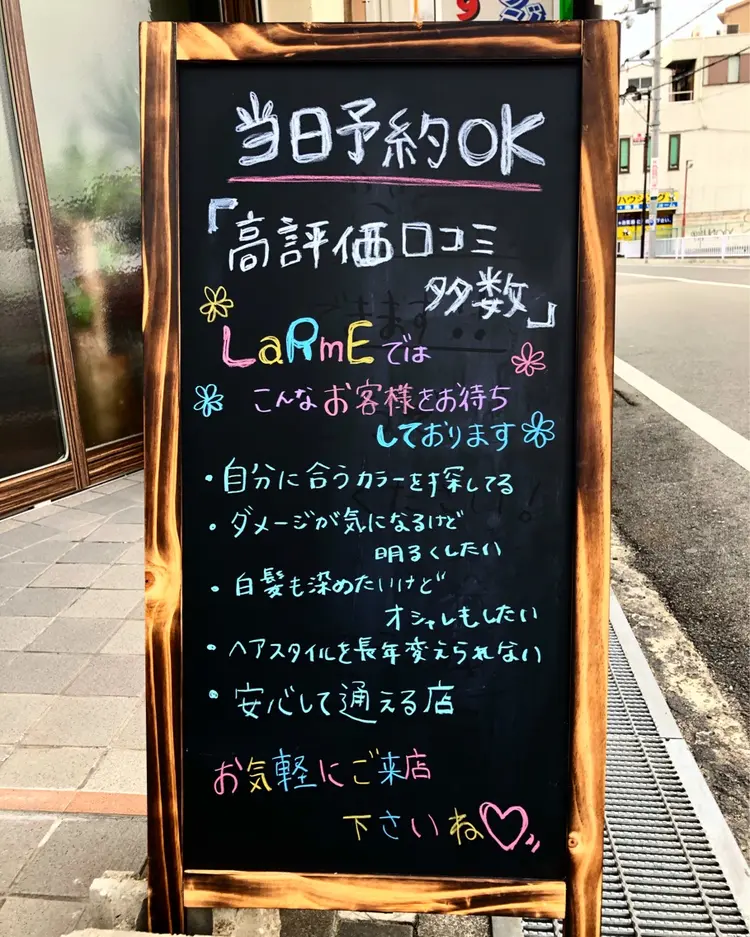 当日予約OK
『高評価口コミ
多数』
LaRmEでは
こんなお客様をお待ち
しております
・自分に合うカラーを探してる
・ダメージが気になるけど
明るくしたい
・白髪も染めたいけど
オシャレもしたい
・ヘアスタイルを長年変えられない
・安心して通える店
お気軽にご来店
下さいね♡
ハウジング